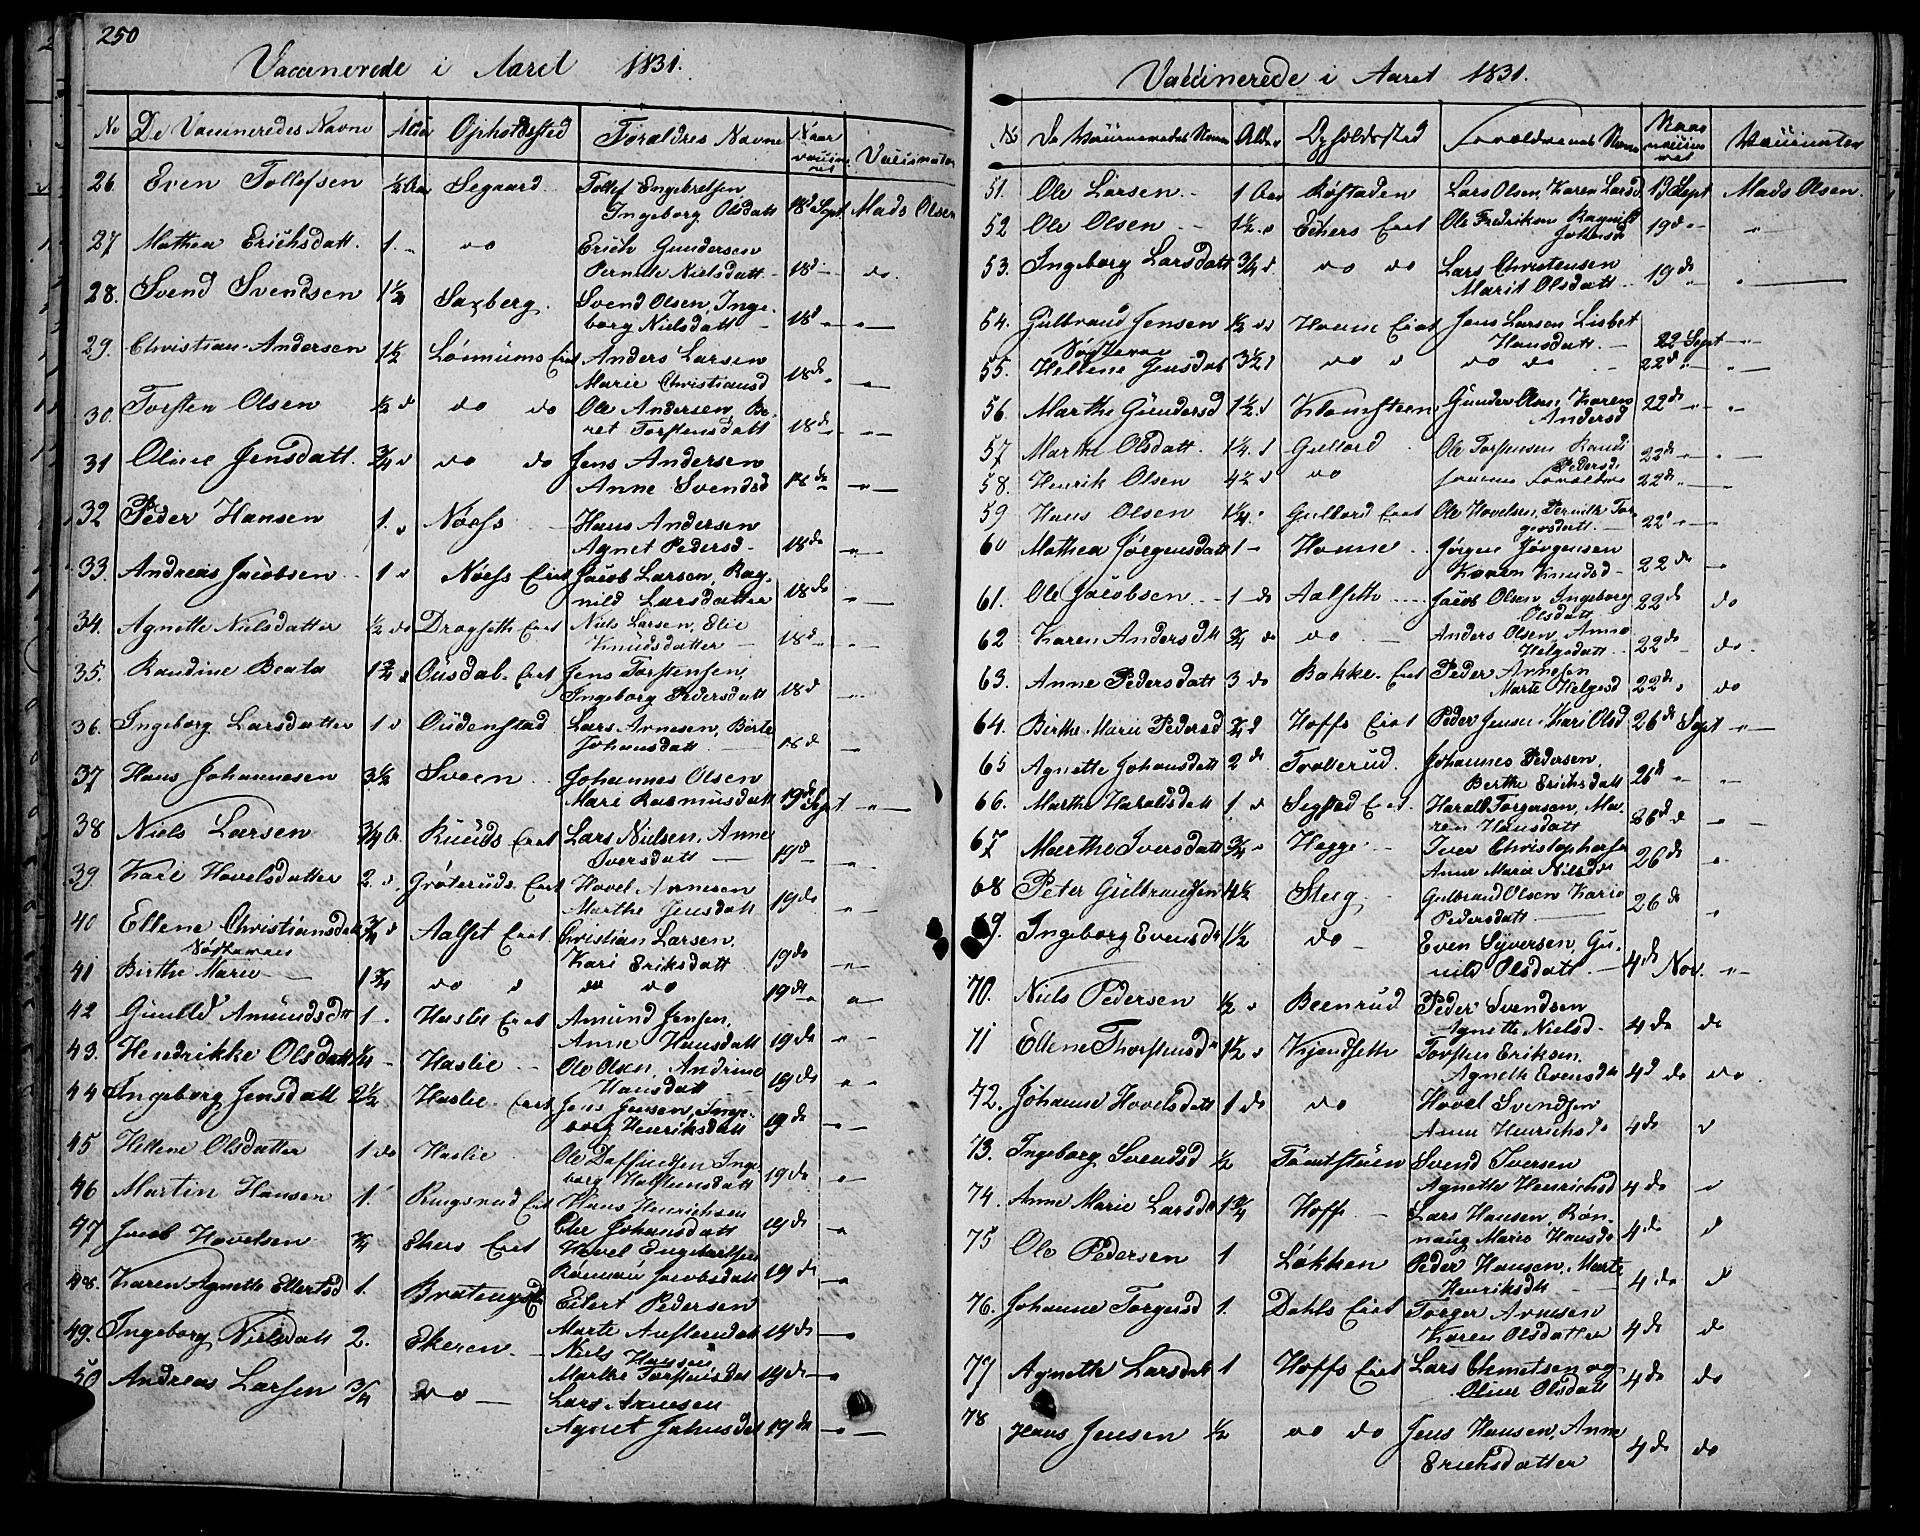 250
Vaccinerede i Aaret 1831.
No De Vaccineredes Navne Alder Opholdssted Forældres Navne Naar vaccineret Vaccinator
26. Even Tollefsen ½ Aar Segaard Tollef Engebretsen
Ingeborg Olsdatt 18d Sept Mads Olsen
27 Mathea Erichsdatt. 1. „ do Erich Gundersen
Pernille Nielsdatt. 18d do.
28. Svend Svendsen 1½ Saxberg. Svend Olsen, Inge-
borg Nielsdatt 18d „ „
29. Christian Andersen 1½ Lönnums Eiet Anders Larsen
Marie Christiansd 18do „
30. Torsten Olsen ½ d do do Ole Andersen, Be-
ret Torstensdatt 18do „
31 Oline Jensdatt. ¾ d do do Jens Andersen
Anne Svendsd 18do „
32 Peder Hansen 1. „ Nöess Hans Andersen
Agnet Pedersd 18do „
33. Andreas Jacobsen 1 d Nöess Eiet Jacob Larsen, Rag-
nild Larsdatter 18do „
34. Agnette Nielsdatter ½ do Dragseth Eiet Niels Larsen, Elie
Knudsdatter 18d „
35. Randine Beata 1¾ d Ousdal Eiet Jens Torstensen,
Ingeborg Pedersdatt 18d „
36. Ingeborg Larsdatter 1 d Oudenstad Lars Arnesen, Birte
Johansdatt. 18d „
37 Hans Johannesen 3½ Sveen Johannes Olsen
Mari Rasmusdatt 19d Sept „
38 Niels Larsen ¾ A. Ruuds Eiet Lars Nielsen, Anne
Iversdatt 19d „
39 Kari Hovelsdatter 2. d. Gröteruds Eiet Hovel Arnesen
Marthe Jensdatt 19do „
40 Ellene Christiansdatt ¾ d Aalset Eiet Christian Larsen,
Kari Eriksdatt 19do „
41 Birthe Marie 1¾ do d do do 19do „
42 Gunild Amundsdtt 1. Haslie Eiet Amund Jensen,
Anne Hansdatt 19do „
43. Hendrikke Olsdatt ¼ Haslie Ole Olsen, Andrine
Hansdatt 19do „
44 Ingeborg Jensdatt 2½ Haslie Eiet Jens Jensen, Inge-
borg Henriksdatt 19do „
45 Hellene Olsdatter 1 do Haslie Ole Daffindsen Inge-
borg 19do „
46 Martin Hansen 1. Ringsrud Eiet Hans Henrichsen
Elie Johansdatt 19do „
47 Jacob Hovelsen ¾ Ekers Eiet Hovel Engebretsen
Rönnau Jacobsdatt 19do „
48. Karen Agnette Ellertsd 1. Eilert Pedersen
Marte 19do „
49. Ingeborg Nielsdatt 2. Ekeren Niels Hansen,
Marthe Torstensdatt 19do „
50 Andreas Larsen ¾ do Lars Arnesen
Agnet Johnsdat 19do „
Vaccinerede i Aaret 1831.
No De Vaccineredes Navne Alder Opholdssted Forældrenes Navne Naar vaccineret Vaccinator
51. Ole Larsen 1 Aar Röstaden Lars Olsen, Karen Larsd 19 Sept Mads Olsen.
52 Ole Olsen 1½ d Eckers Eiet Ole Fredriksen Ragnild
Johansd 19do „
53. Ingeborg Larsdatt ¾ d do do Lars Christensen
Marit Olsdatt 19do „
54. Gulbrand Jensen ½ do Houne Eiet Jens Larsen Lisbet
Hansdatt. 22 Sept „
55. Hellene Jensdat 3½ d do d do do 22d „ „
56. Marthe Gundersd 1½ d Klomsteen Gunder Olsen Karen
Andersd 22do „ „
57 Marthe Olsdatt 1¼ d Gullord Ole Torstensen Randi
Pedersd 22do „ „
58. Henrik Olsen 4½ d do samme Forældre 22do „
59 Hans Olsen 1¼ Gullord Eiet Ole Hovelsen, Pernille Tor-
gersdatt. 22d „
60 Mathea Jörgensdatt 1 Houne Jörgen Jörgensen
Karen Knudsd 22do „
61. Ole Jacobsen 1 do Aalseth Jacob Olsen, Ingeborg
Olsdatt 22do do
62 Karen Andersdtt ¾ do do Anders Olsen, Anne
Helgedatt 22do do.
63. Anne Pedersdatt 3 do Bakke Eiet Peder Arnesen
Marte Helgesd 22do do
64. Birthe Marie Pedersd ¾ d Hoffs Eiet Peder Jensen Kari Olsd 26do Sept „
65 Agnette Johansdatt 2 do Trollerud. Johannes Pedersen,
Berthe Erichsdatt 26d „ „
66. Marthe Haraldsdatt 1. d Segstad Eiet. Harald Torgersen, Ma-
ren Hansdatt 26do d „
67 Marthe Iversdatt ¾ d Hegge Iver Christophersen
Anne Marie Nielsdr 26do „
68 Peter Gulbrandsen 4½ Steig Gulbrand Olsen Kari
Pedersdatt 26do „
69. Ingeborg Evensdr 1½ do Even Syversen, Gu-
nild Olsdatt. 4do Nov. „
70. Niels Pedersen ½ d Beenrud Peder Svendsen
Agnette Nielsd 4do do
71 Ellene Thorstensdr 1½ d Kjendseth Torsten Eriksen,
Agnette Evensdr 4d do do
72. Johanne Hovelsdatt 1 do do Hovel Svendsen
Anne Henrichsdr 4do d
73. Ingeborg Svendsd ½ Tomtstuen Svend Iversen
Agnette Henrichsd 4do d
74. Anne Marie Larsdr 1¾ Hoff Lars Hansen, Rön-
naug Marie Hansdr 4do d
75 Ole Pedersen 1 Lökken Peder Hansen, Marte
Henriksdtt 4do d
76. Johanne Torgersd 1. Dahls Eiet Torger Arnesen
Karen Olsdatter 4do do
77 Agnethe Larsdatt 1 Hoffs Eiet Lars Christsen og
Oline Olsdatt 4do do
78 Hans Jensen ½ do do Jens Hansen, Anne
Erichsdatter 4do do